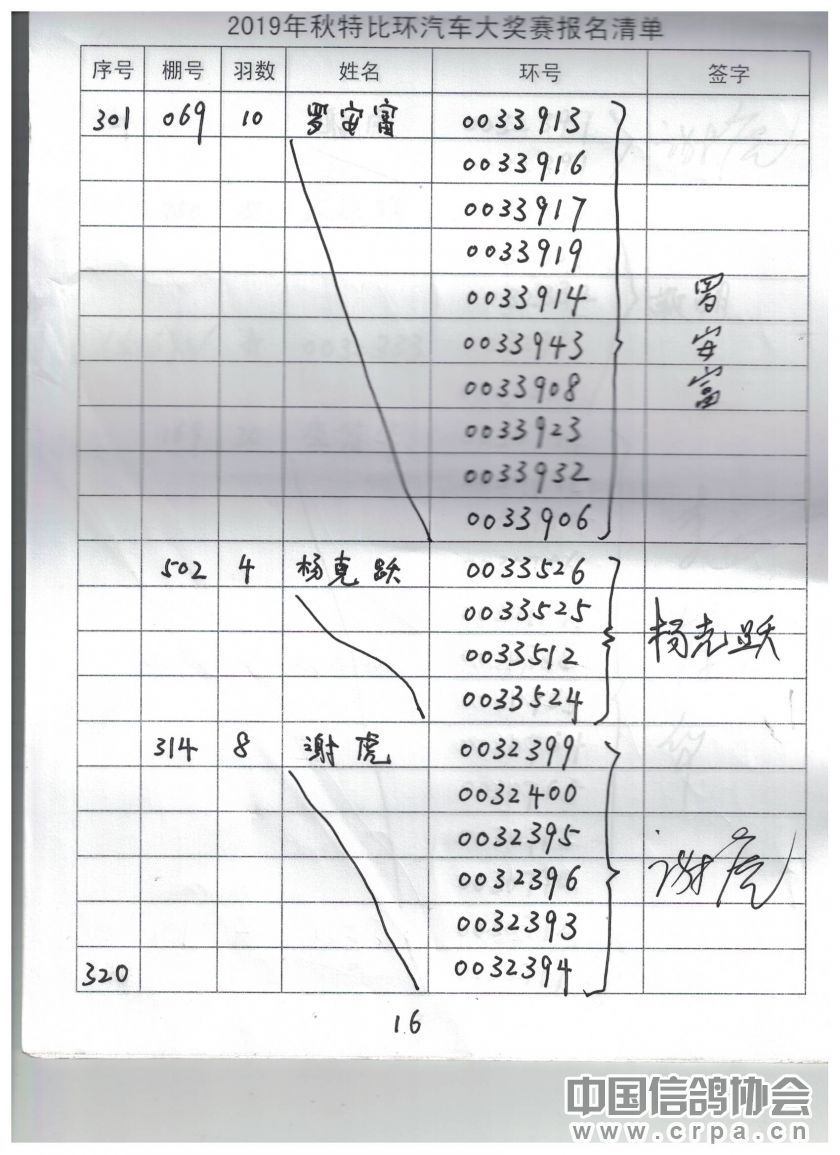 2019年秋特比环汽车大奖赛报名清单
序号 棚号 羽数 姓名 环号 签字
301 069 10 罗安富 0033913
0033916
0033917
0033919
0033914 罗
0033943 安
0033908 富
0033923
0033932
0033906
502 4 杨克跃 0033526
0033525
0033512 杨克跃
0033524
314 8 谢虎 0032399
0032400
0032395
0032396 谢虎
0032393
320 0032394
16
中国信鸽协会
www.crpa.cn